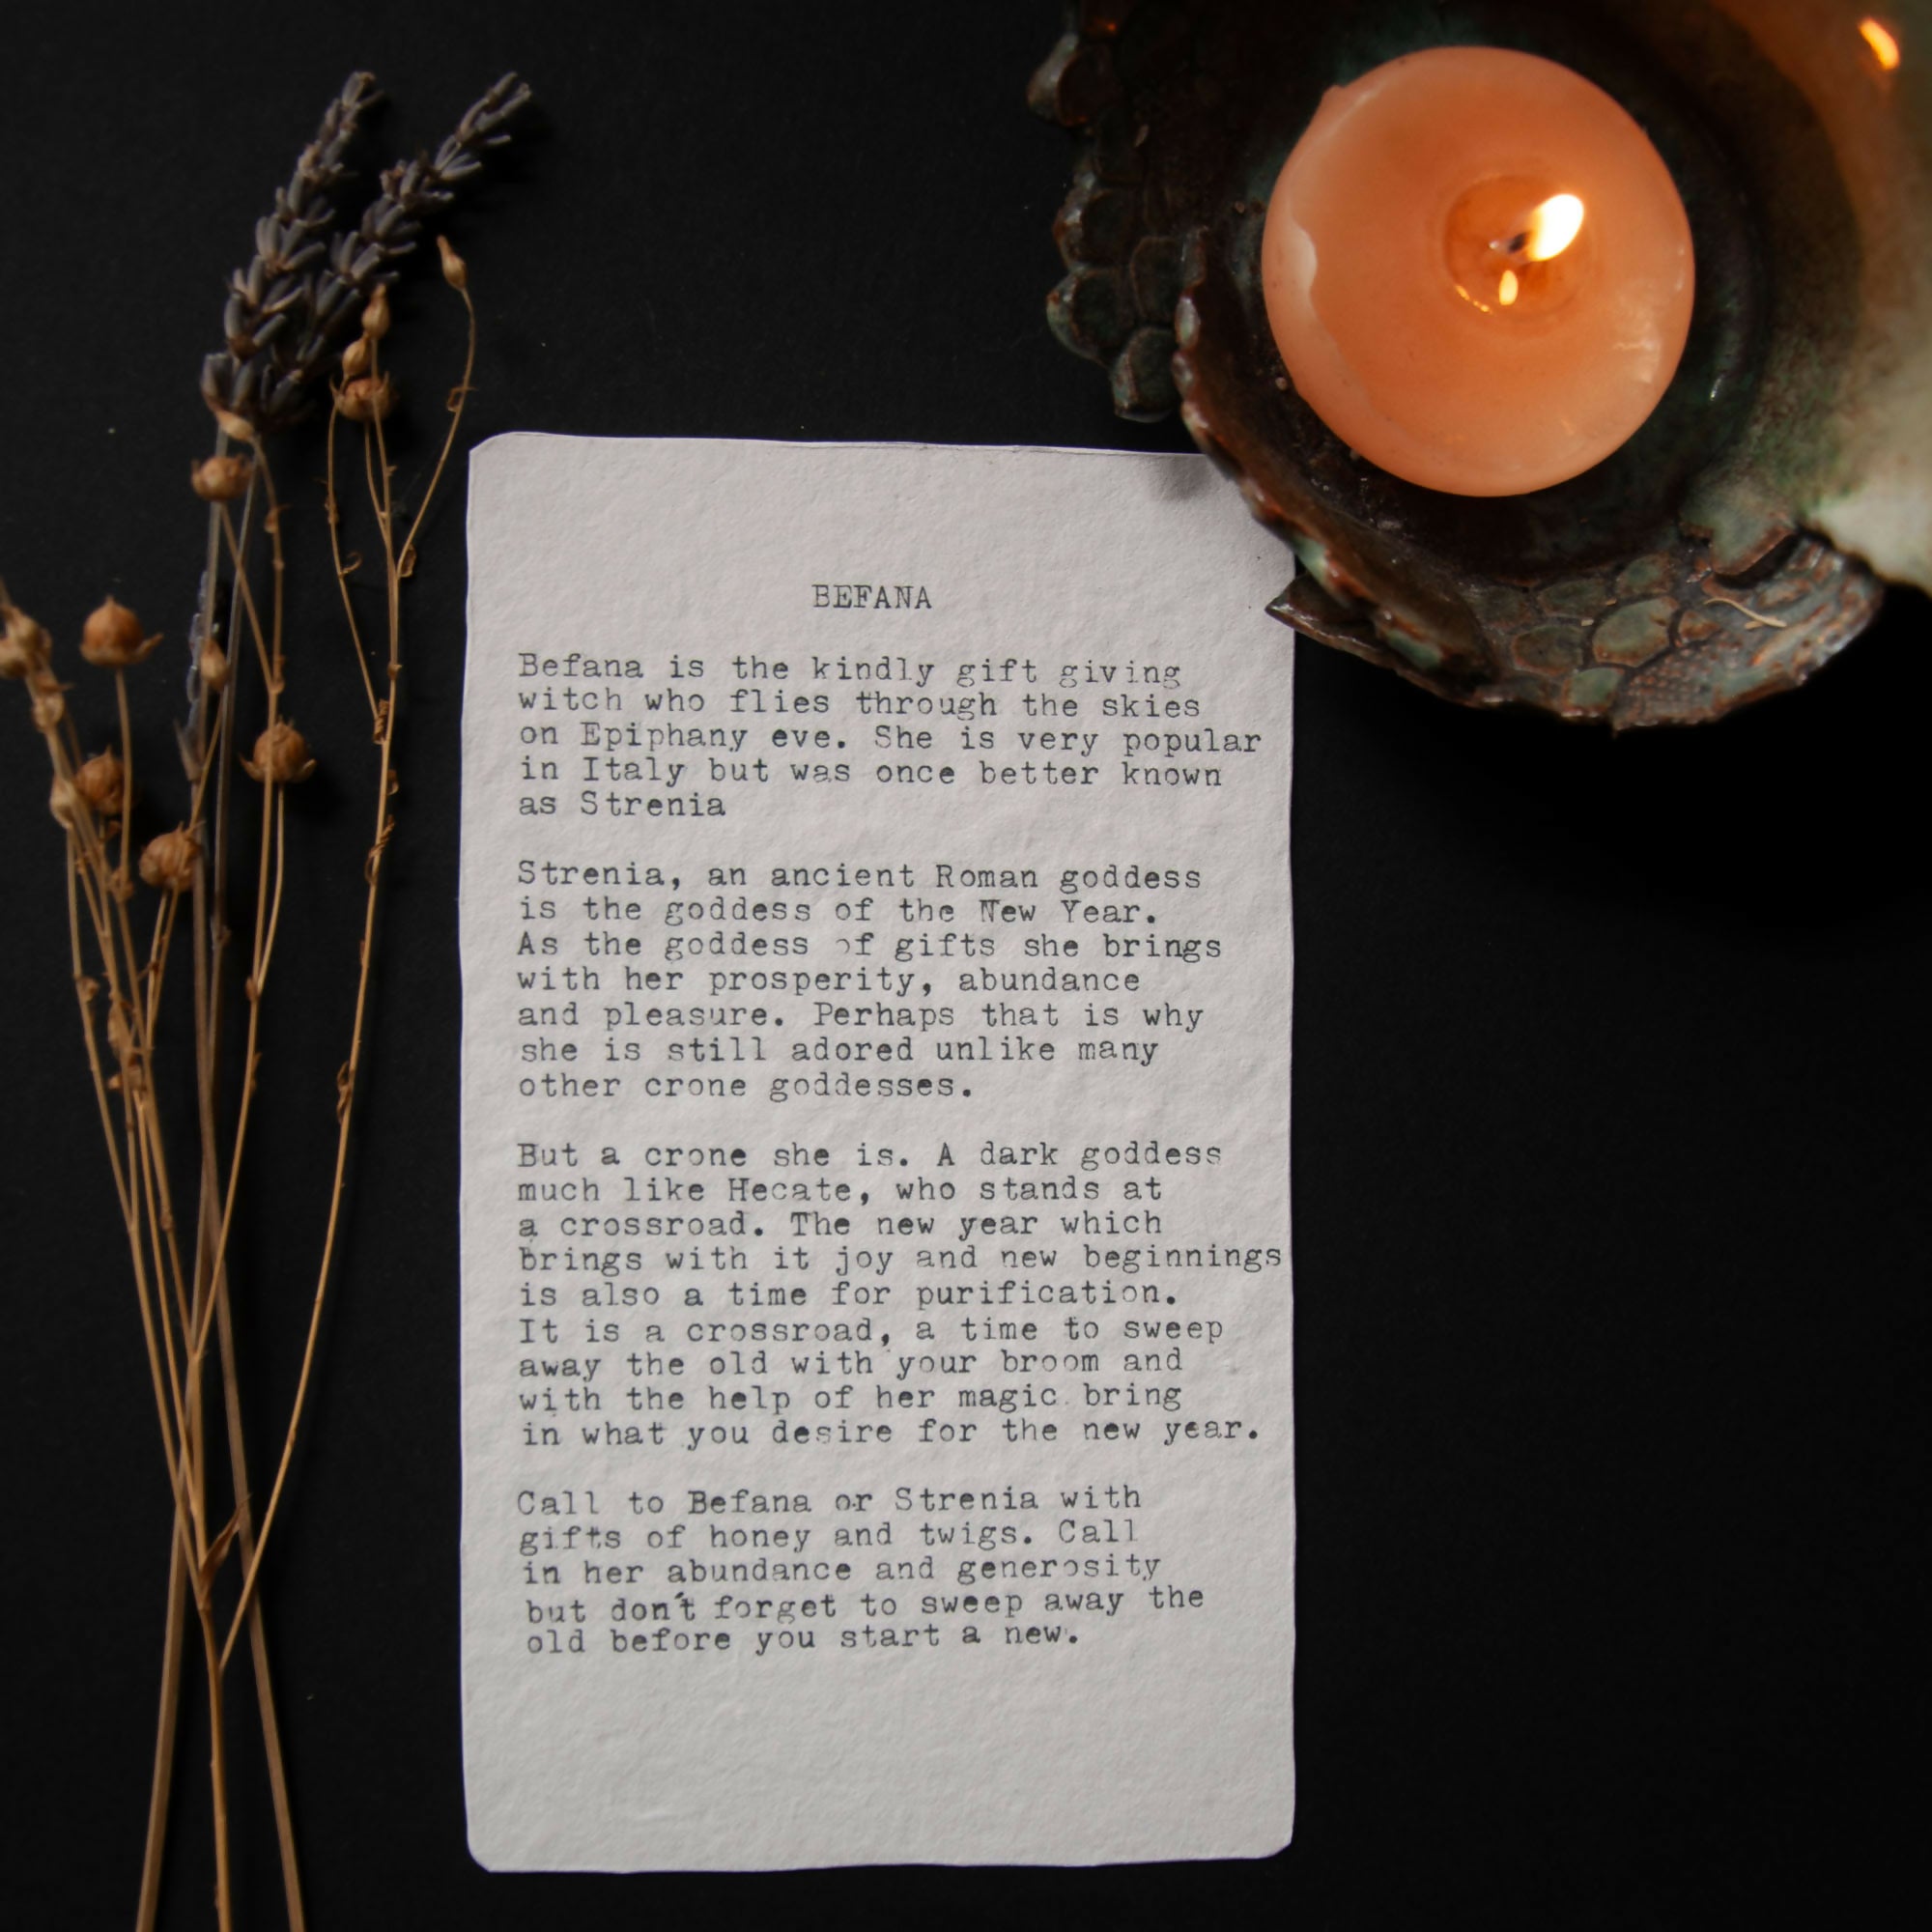 BEFANA
Befana is the kindly gift giving
witch who flies through the skies
on Epiphany eve. She is very popular
in Italy but was once better known
as Strenia
Strenia, an ancient Roman goddess
is the goddess of the New Year.
As the goddess of gifts she brings
with her prosperity, abundance
and pleasure. Perhaps that is why
she is still adored unlike many
other crone goddesses.
But a crone she is. A dark goddess
much like Hecate, who stands at
a crossroad. The new year which
brings with it joy and new beginnings
is also a time for purification.
It is a crossroad, a time to sweep
away the old with your broom and
with the help of her magic bring
in what you desire for the new year.
Call to Befana or Strenia with
gifts of honey and twigs. Call
in her abundance and generosity
but don't forget to sweep away the
old before you start a new.